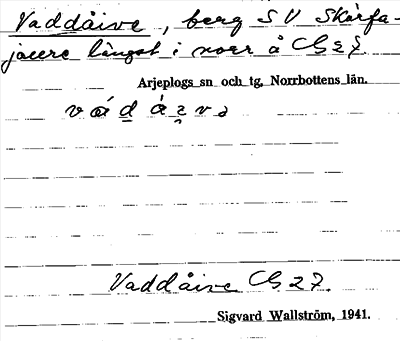 Vaddåive, berg SV Skårfa-
jaure längst i norr å Cb 27.
Arjeplogs sn och tg, Norrbottens län.
Vaddåive Cb 27.
Sigvard Wallström, 1941.